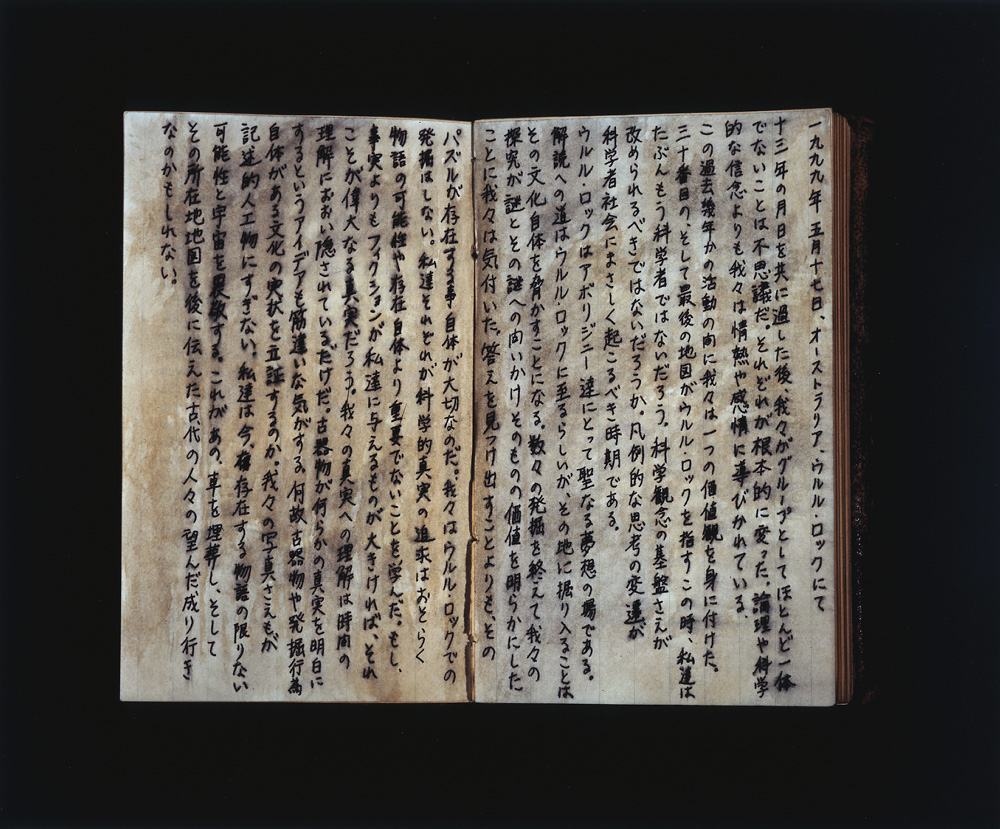 一九九九年 五月十七日、オーストラリア、ウルル・ロックにて
十三年の月日を共に過した後、我々がグループとしてほとんど一体
でないことは不思議だ。それぞれが根本的に変った。論理や科学
的な信念よりも、我々は情熱や感情に導びかれている。
この過去幾年かの活動の内に我々は一つの価値観を身に付けた。
三十番目の、そして最後の地図がウルル・ロックを指すこの時、私達は
たぶんもう科学者ではないだろう。科学観念の基盤さえが
改められるべきではないだろうか。凡例的な思考の変遷が
科学者社会にまさしく起こるべき時期である。
ウルル・ロックはアボリジニー達にとって聖なる夢想の場である。
解説への道はウルル・ロックに至るらしいが、その地に掘り入ることは
その文化自体を脅かすことになる。数々の発掘を終えて我々の
探究が謎とその謎への問いかけそのものの価値を明らかにした
ことに我々は気付いた。答えを見つけ出すことよりも、その
パズルが存在する事自体が大切なのだ。我々はウルル・ロックでの
発掘はしない。私達それぞれが科学的真実の追求はおそらく
物語の可能性や存在自体より重要でないことを学んだ。もし、
事実よりもフィクションが私達に与えるものが大きければ、それ
ことが偉大なる真実だろう。我々の真実への理解は時間の
理解におおい隠されている、だけだ。古器物が何らかの真実を明白に
するというアイデアも筋違いな気がする。何故古器物や発掘行為
自体がある文化の実状を立証するのか。我々の写真さえもが
記述的人工物にすぎない。私達は今、存在する物語の限りない
可能性と宇宙を畏敬する。これがあの、車を埋葬し、そして
その所在地地図を後に伝えた古代の人々の望んだ成り行き
なのかもしれない。